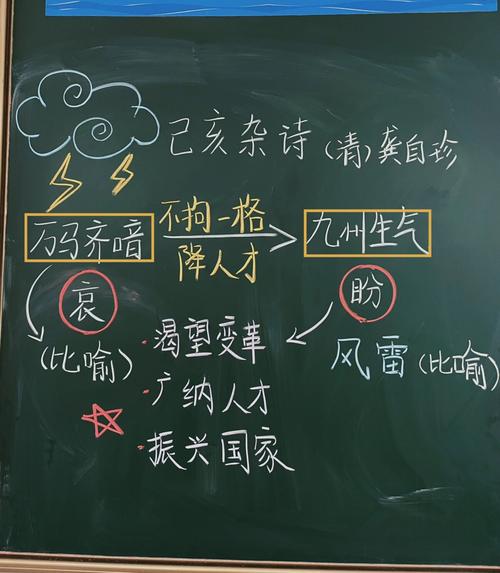 己亥杂诗(清)龚自珍
不拘一格
万马齐喑
九州生气
降人才
哀
盼
(比喻)
渴望变革
风雷(比喻)
广纳人才
振兴国家